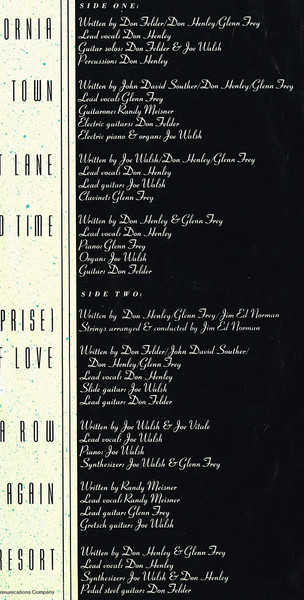 SIDE ONE:
ORNIA
Written by Don Felder/Don Henley/Glenn Frey
Lead vocal: Don Henley
Guitar solos: Don Felder & Joe Walsh
Percussion: Don Henley
TOWN
Written by John David Souther/Don Henley/Glenn Frey
Lead vocal: Glenn Frey
Guitarone: Randy Meisner
Electric guitars: Don Felder
Electric piano & organ: Joe Walsh
LANE
Written by Joe Walsh/Don Henley/Glenn Frey
Lead vocal: Don Henley
Lead guitar: Joe Walsh
Clavinet: Glenn Frey
D TIME
Written by Don Henley & Glenn Frey
Lead vocal: Don Henley
Piano: Glenn Frey
Organ: Joe Walsh
Guitar: Don Felder
SIDE TWO:
PRISE)
Written by Don Henley/Glenn Frey/Jim Ed Norman
Strings arranged & conducted by Jim Ed Norman
F LOVE
Written by Don Felder/John David Souther/
Don Henley/Glenn Frey
Lead vocal: Don Henley
Slide guitar: Joe Walsh
Lead guitar: Don Felder
A ROW
Written by Joe Walsh & Joe Vitale
Lead vocal: Joe Walsh
Piano: Joe Walsh
Synthesizer: Joe Walsh & Glenn Frey
AGAIN
Written by Randy Meisner
Lead vocal: Randy Meisner
Lead guitar: Glenn Frey
Gretsch guitar: Joe Walsh
RESORT
Written by Don Henley & Glenn Frey
Lead vocal: Don Henley
Synthesizer: Joe Walsh & Don Henley
Pedal steel guitar: Don Felder
mmunications Company